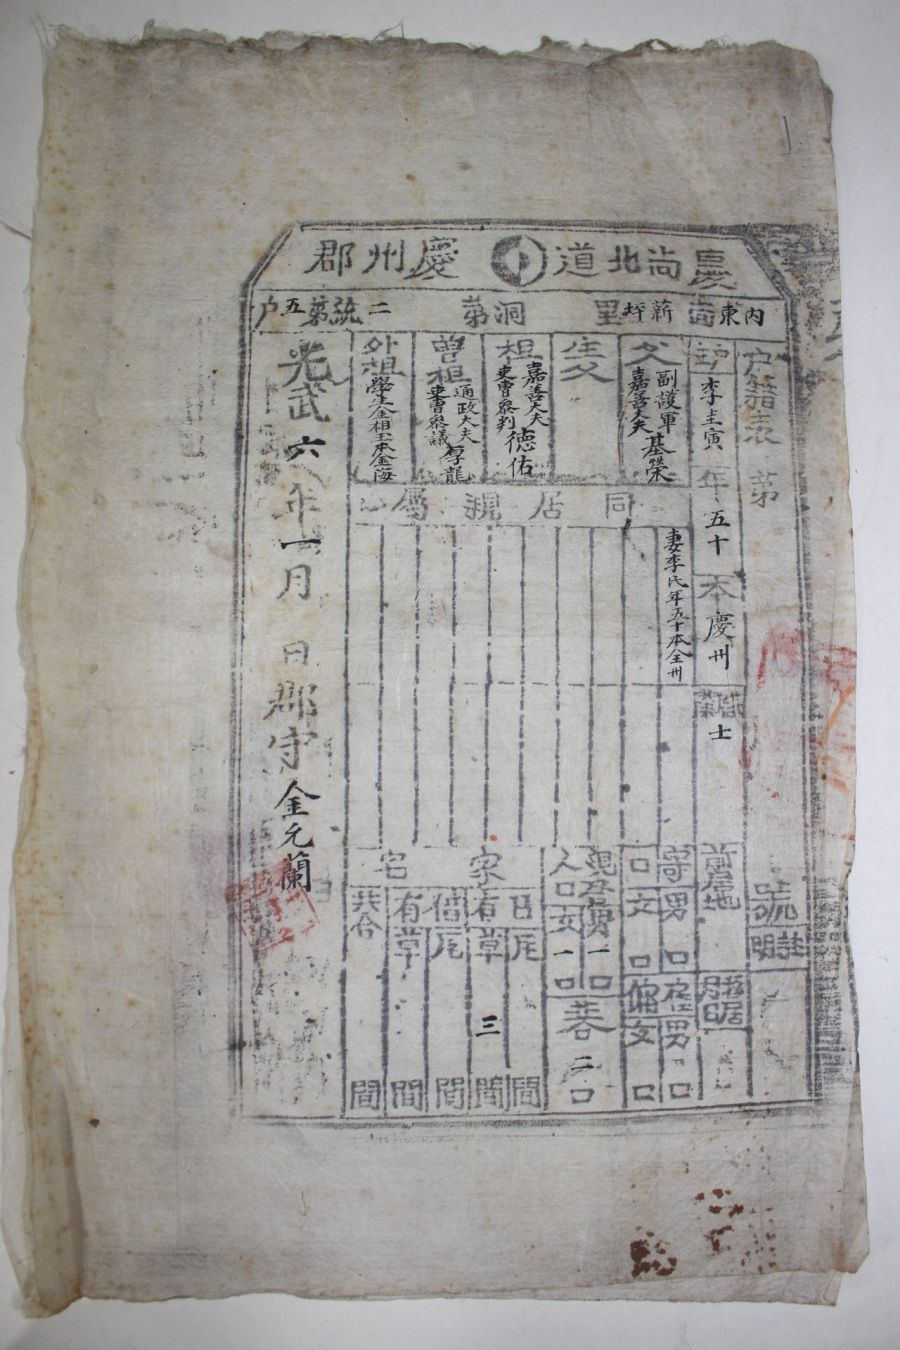 慶尙北道 慶州郡
內東面 薪坪里 洞第 二統第五戶
戶籍表 第 號
戶主 李圭寅 年五十 本慶州 職業 士 前居地
父 副護軍 嘉善大夫 基榮
生父
祖 嘉善大夫 吏曹參判 德佑
曾祖 通政大夫 吏曹參議 厚龍
外祖 學生金相玉本金海
同居親屬
妻李氏年五十本全州
寄口 男 口 女 口
雇傭 男 口 女 口
現存人口 男 一口 女 一口
共 二口
家宅
己有 瓦 間 草 三間
借有 瓦 間 草 間
共合 間
光武六年一月 日 郡守 金允蘭